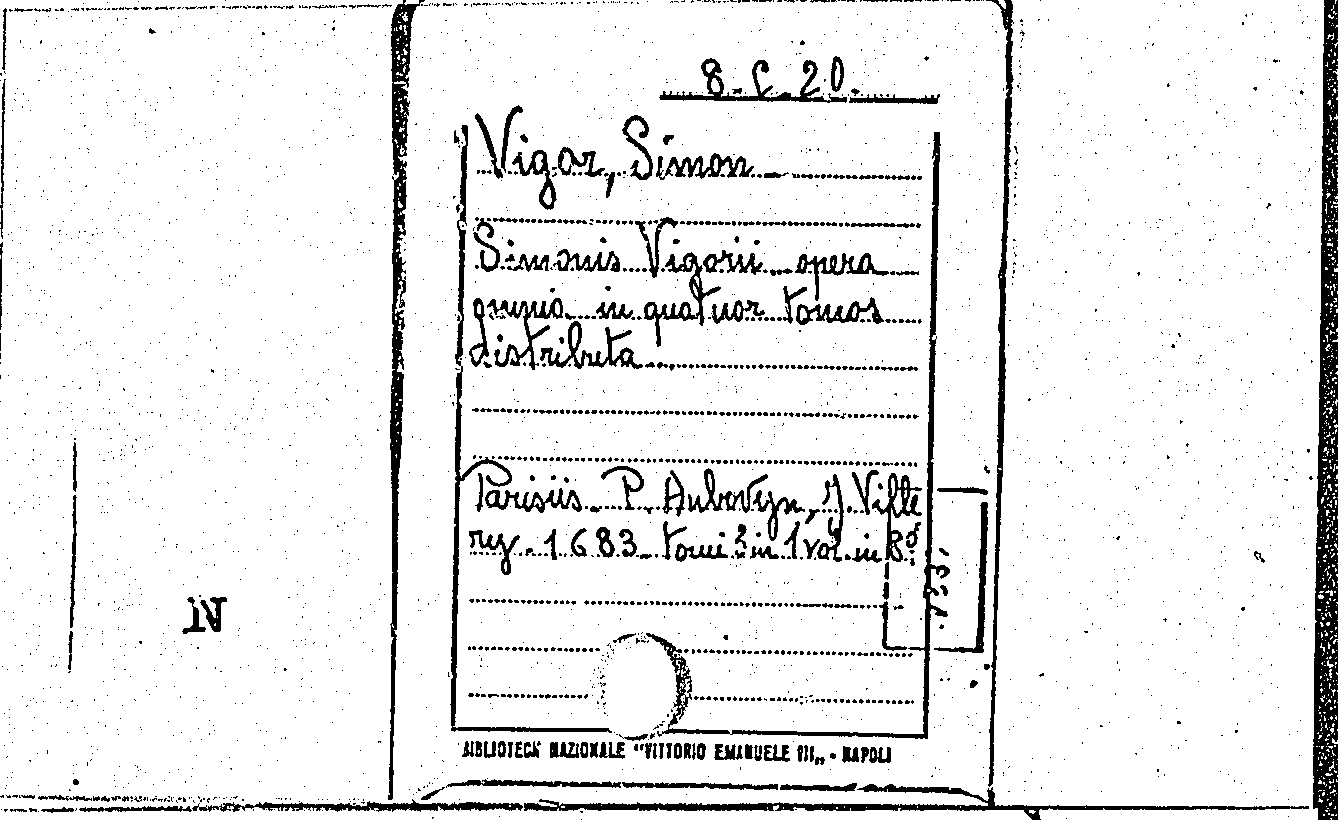 8. C. 20.
Vigor, Simon
Simonis Vigorii opera
omnia in quatuor tomos
distributa
Parisiis P. Aubovyn, J. Ville
ry. 1683. tomi 3 in 1 vol. in 8º
N
BIBLIOTECA NAZIONALE "VITTORIO EMANUELE III„ - NAPOLI